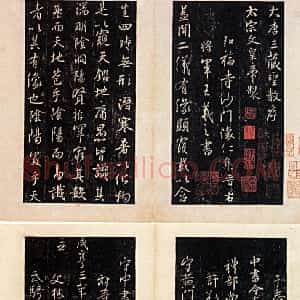 大唐三藏聖教序
太宗文皇帝製
弘福寺沙門懷仁集晉右
將軍王羲之書
蓋聞二儀有像顯覆載以含
生四時無形潛寒暑以化物
是以窺天鑑地庸愚皆識其
端明陰洞陽賢哲罕窮其數
然而天地苞乎陰陽而易識
者以其有像也陰陽處乎天
中書令
禮部
許
守黃門
守中書
咸亨三年
文林
武騎